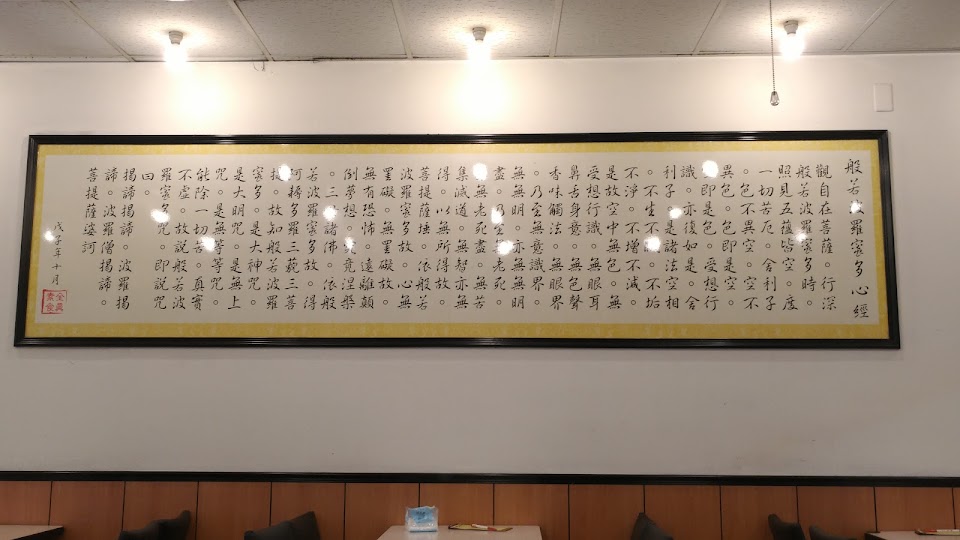 般若波羅蜜多心經
觀自在菩薩。行深
般若波羅蜜多時。
照見五蘊皆空。度
一切苦厄。舍利子
。色不異空。空不
異色。色即是空。
空即是色。受想行
識。亦復如是。舍
利子。是諸法空相
。不生不滅。不垢
不淨。不增不減。
是故空中無色。無
受想行識。無眼耳
鼻舌身意。無色聲
香味觸法。無眼界
。乃至無意識界。
無無明。亦無無明
盡。乃至無老死。
亦無老死盡。無苦
集滅道。無智亦無
得。以無所得故。
菩提薩埵。依般若
波羅蜜多故。心無
罣礙。無罣礙故。
無有恐怖。遠離顛
倒夢想。究竟涅槃
。三世諸佛。依般
若波羅蜜多故。得
阿耨多羅三藐三菩
提。故知般若波羅
蜜多。是大神咒。
是大明咒。是無上
咒。是無等等咒。
能除一切苦。真實
不虛。故說般若波
羅蜜多咒。即說咒
曰。
揭諦揭諦。波羅揭
諦。波羅僧揭諦。
菩提薩婆訶
戊子年十月
全真
素食